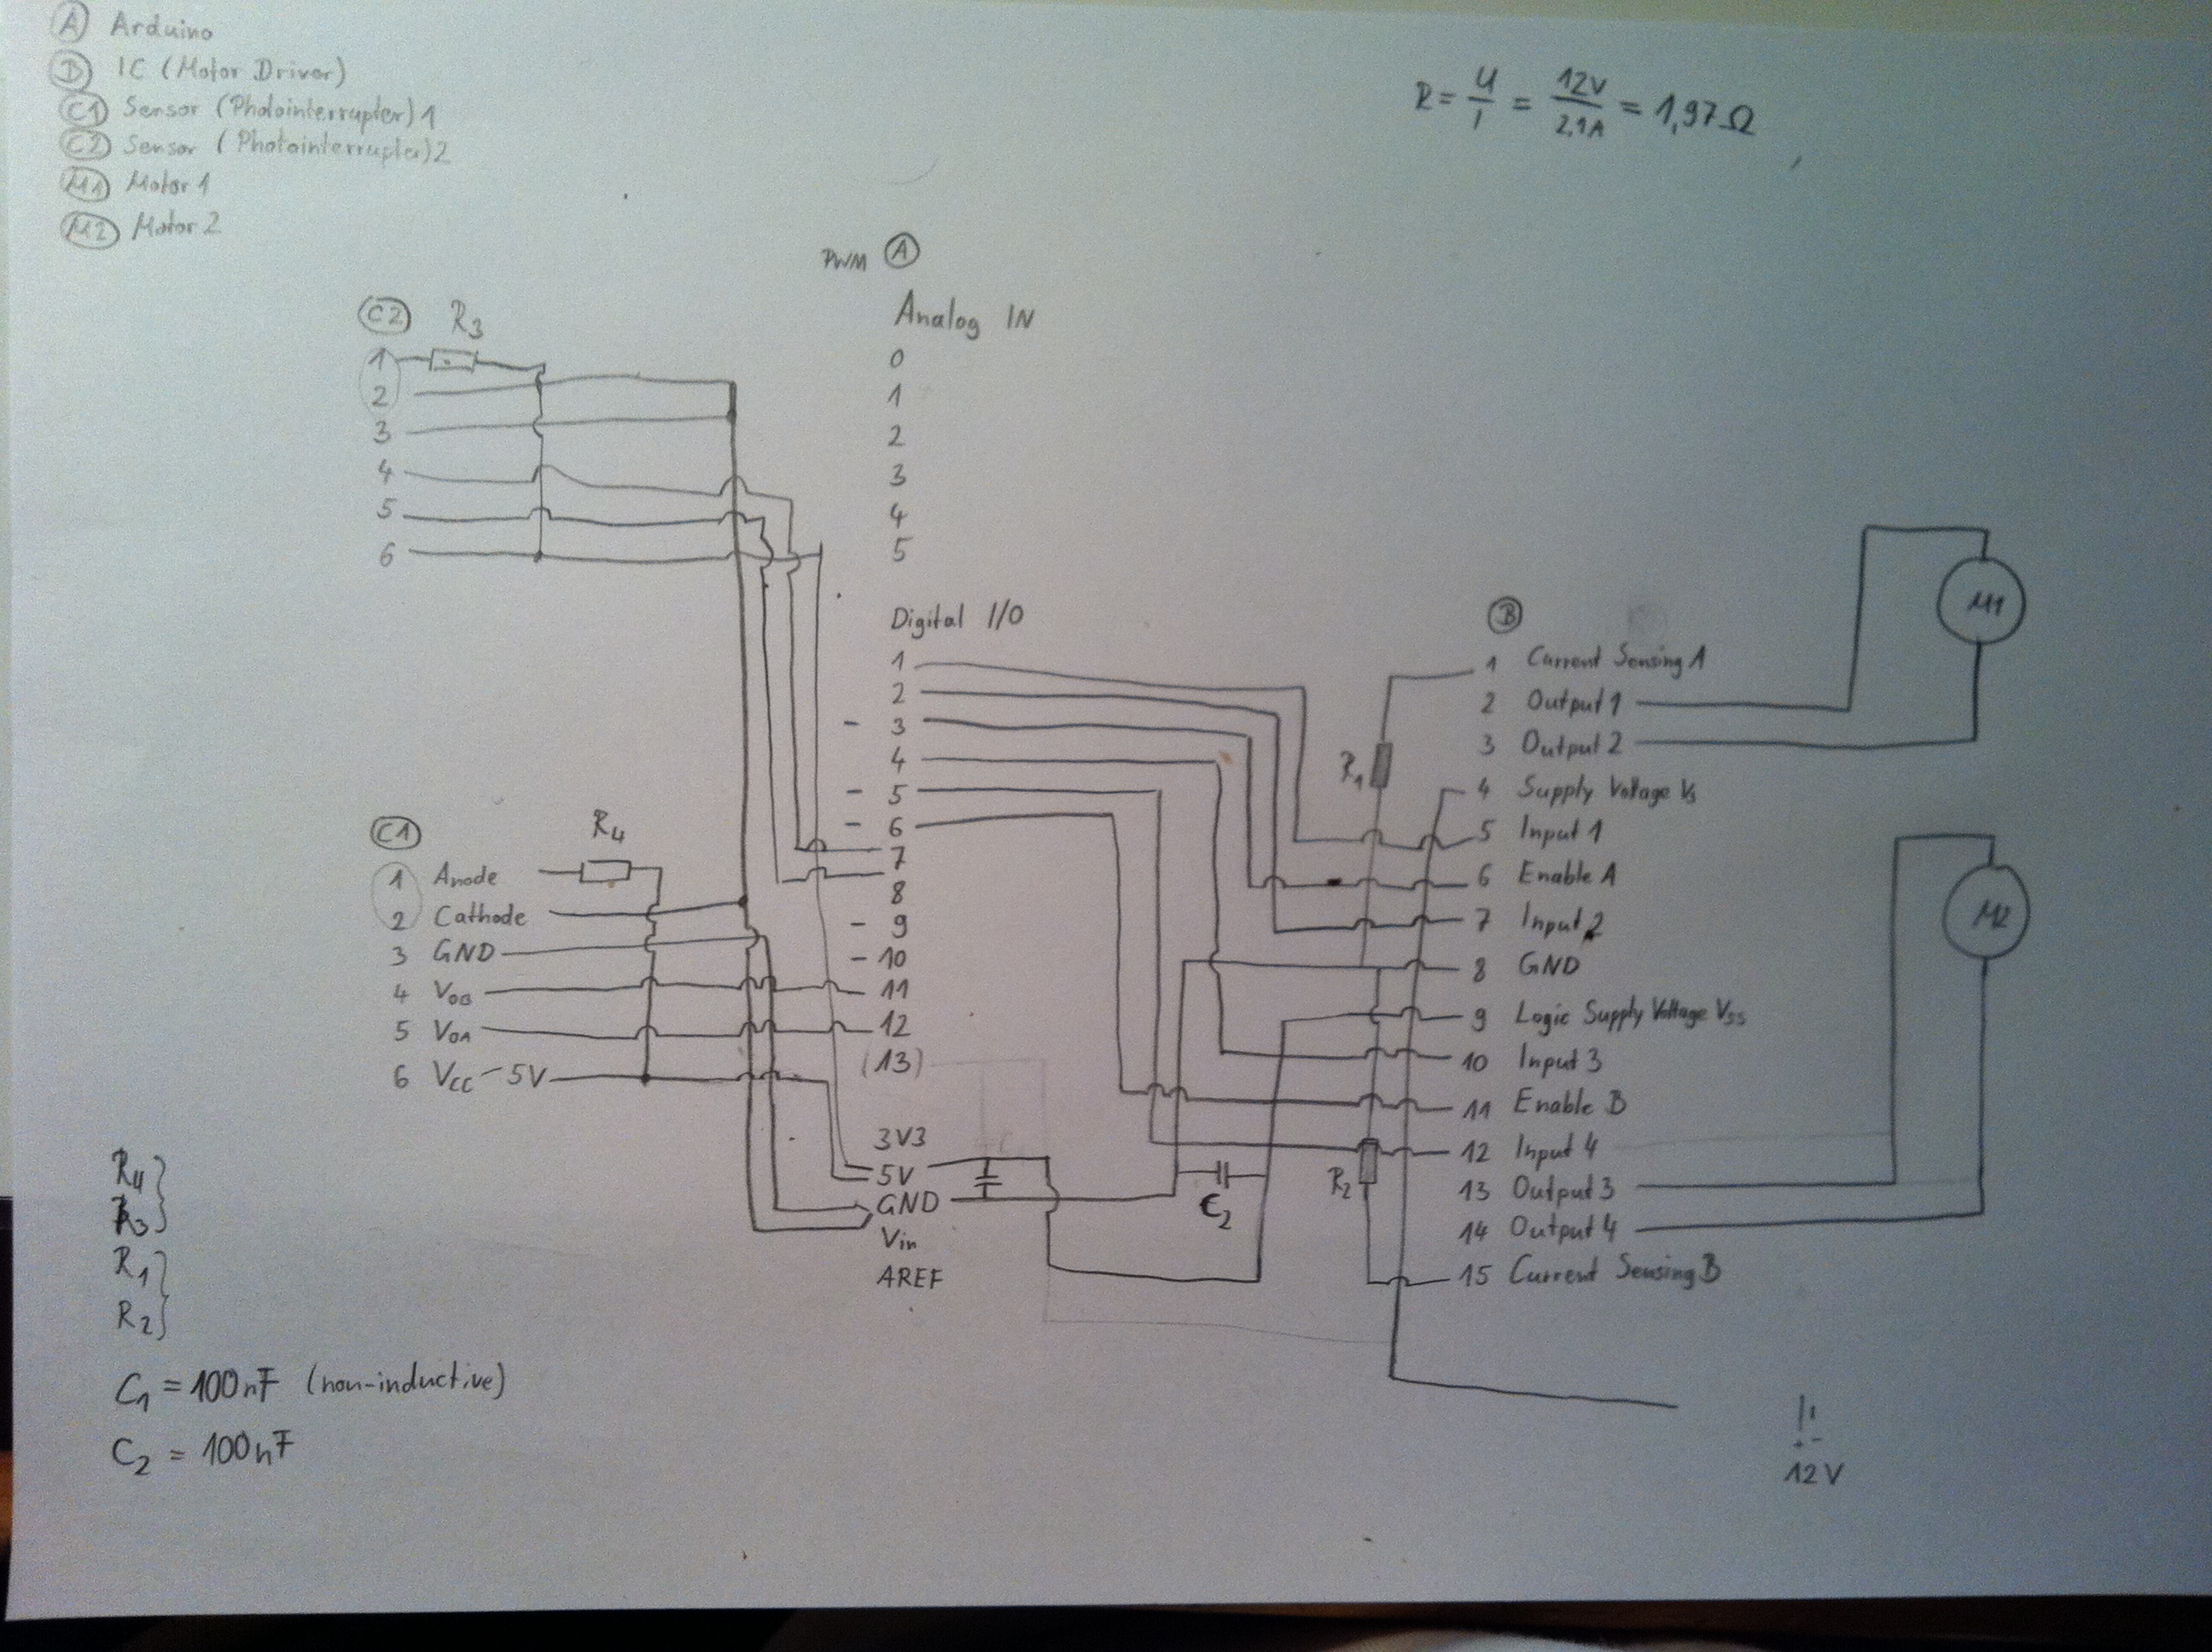 (A) Arduino
(B) IC (Motor Driver)
(C1) Sensor (Photointerrupter) 1
(C2) Sensor (Photointerrupter) 2
(M1) Motor 1
(M2) Motor 2
R = U/I = 12V/2.1A = 1,97Ω
(C2)
R3
1
2
3
4
5
6
(C1)
1 Anode
2 Cathode
3 GND
4 VOB
5 VOA
6 VCC - 5V
R4
PWM (A)
Analog IN
0
1
2
3
4
5
Digital I/O
1
2
- 3
4
- 5
- 6
7
8
- 9
- 10
11
12
(13)
3V3
5V
GND
Vin
AREF
C2
R1
R2
(B)
1 Current Sensing 1
2 Output 1
3 Output 2
4 Supply Voltage Vs
5 Input 1
6 Enable A
7 Input 2
8 GND
9 Logic Supply Voltage VSS
10 Input 3
11 Enable B
12 Input 4
13 Output 3
14 Output 4
15 Current Sensing B
M1
M2
+ -
12V
R4 }
R3 }
R1 }
R2 }
C1 = 100nF (non-inductive)
C2 = 100nF